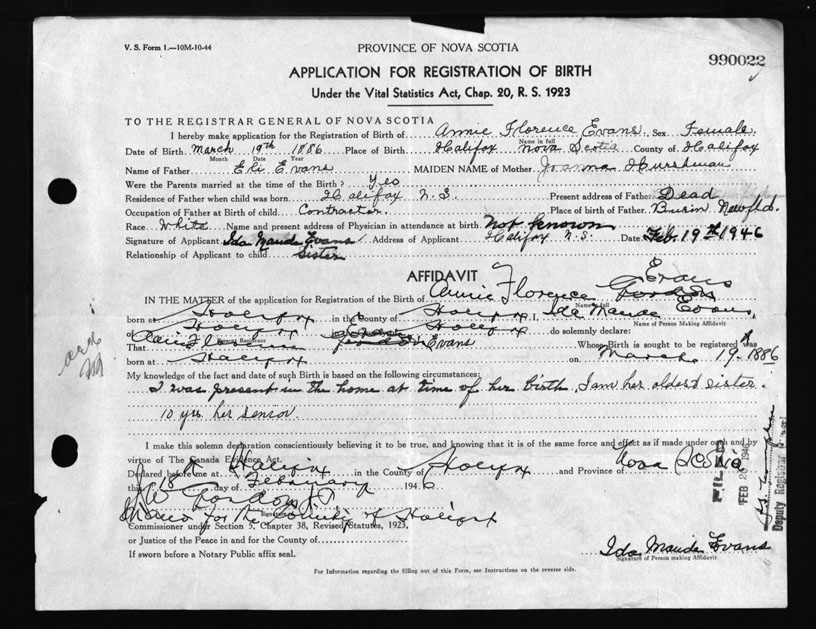 V. S. Form 1.—10M-10-44
PROVINCE OF NOVA SCOTIA
990022
APPLICATION FOR REGISTRATION OF BIRTH
Under the Vital Statistics Act, Chap. 20, R. S. 1923
TO THE REGISTRAR GENERAL OF NOVA SCOTIA
I hereby make application for the Registration of Birth of Annie Florence Evans, Sex Female.
Name in full
Date of Birth March 19th 1886 Place of Birth Halifax Nova Scotia County of Halifax
Month Date Year
Name of Father Eli Evans MAIDEN NAME of Mother Joanna
Were the Parents married at the time of the Birth? Yes
Residence of Father when child was born Halifax N.S. Present address of Father Dead
Occupation of Father at Birth of child Contractor. Place of birth of Father Burin Newfld.
Race White Name and present address of Physician in attendance at birth Not known
Signature of Applicant Ida Maude Evans Address of Applicant Halifax N.S. Date Feb. 19th 1946
Relationship of Applicant to child Sister
AFFIDAVIT
Evans
IN THE MATTER of the application for Registration of the Birth of Annie Florence Gordon
Name in full
born at Halifax in the County of Halifax I, Ida Maude Evans,
Name of Person Making Affidavit
of Halifax Halifax do solemnly declare:
Present Residence
That Annie Florence Gordon Evans Whose Birth is sought to be registered was
born at Halifax on March 19 1886
My knowledge of the fact and date of such Birth is based on the following circumstances:
I was present in the home at time of her birth. I am her oldest sister.
10 yrs. her senior.
I make this solemn declaration conscientiously believing it to be true, and knowing that it is of the same force and effect as if made under oath and by
virtue of The Canada Evidence Act.
Declared before me at Halifax in the County of Halifax and Province of Nova Scotia
this 18th day of February 1946
Gordon
for the County of Halifax
Commissioner under Section 5, Chapter 38, Revised Statutes, 1923,
or Justice of the Peace in and for the County of
If sworn before a Notary Public affix seal.
Ida Maude Evans
Signature of Person making Affidavit
FILED
FEB 20 194
Deputy Registrar
For Information regarding the filling out of this Form, see Instructions on the reverse side.